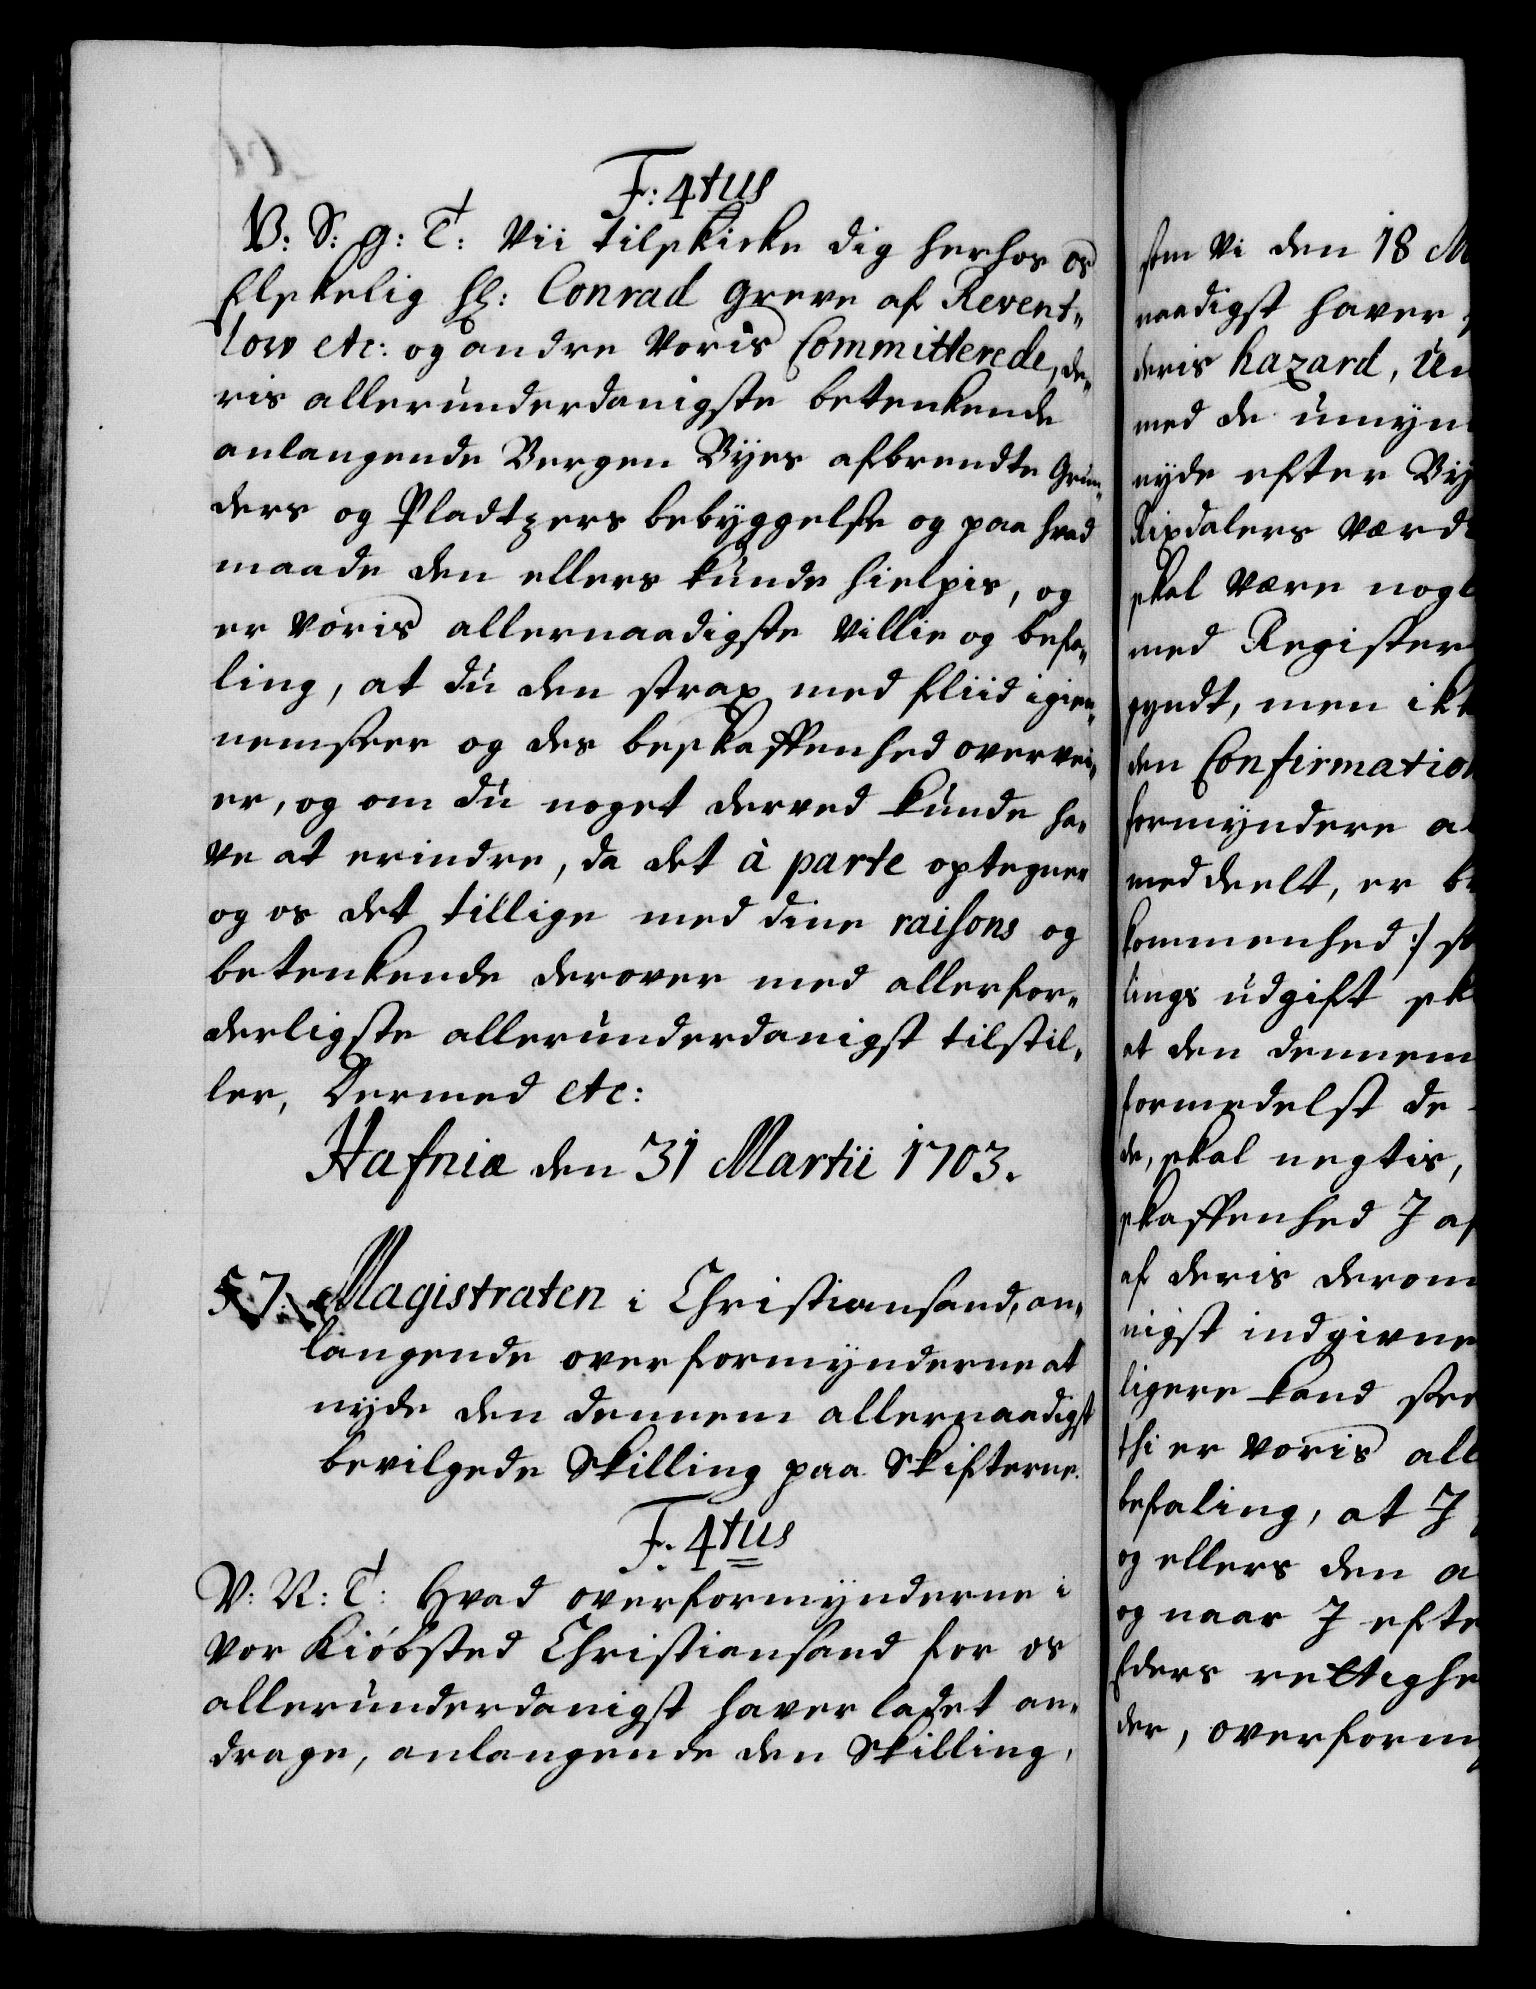 F: 4tus
B: S: G: T: Vii tilskicke dig herhos os
Elskelig H: Conrad Greve af Revent-
low etc: og andre Voris Committerede, de-
ris allerunderdanigste betenkende
anlangende Bergen Byes afbrendte Grun-
ders og Pladtzers bebyggelse og paa hvad
maade den ellers kunde hielpis, og
er Voris allernaadigste Villie og befa-
ling, at du den strax med fliid igien-
nemseer og des beskaffenhed overvei-
er, og om du noget derved kunde ha-
ve at erindre, da det à parte optegner
og os det tillige med dine raisons og
betenkende derover med allerfor-
derligste allerunderdanigst tilstil-
ler, Dermed etc:
Hafniæ den 31 Martii 1703.
57. Magistraten i Christiansand, an-
langende overformynderne at
nyde den dennem allernaadigst
bevilgede Skilling paa Skifterne.
F: 4tus
V: R: T: Hvad overformynderne i
Vor Kiøbsted Christiansand for os
allerunderdanigst haver ladet an-
drage, anlangende den Skilling,
som Vi den 18 M
naadigst haver
deris hazard, Um
med de umyn
nyde efter By
Rixdalers Værd
skal Være nogl
med Register
gyndt, men ikk
den Confirmation
formyndere al
meddeelt, er b
kommenhed :/ so
lings udgift sk
at den dennem
formedelst de
de, skal negtis,
skaffenhed J af
af deris derom
nigst indgivne
ligere kand see
thi er Voris all
befaling, at J
og ellers den a
og naar J efte
fders rettighe
der, overform